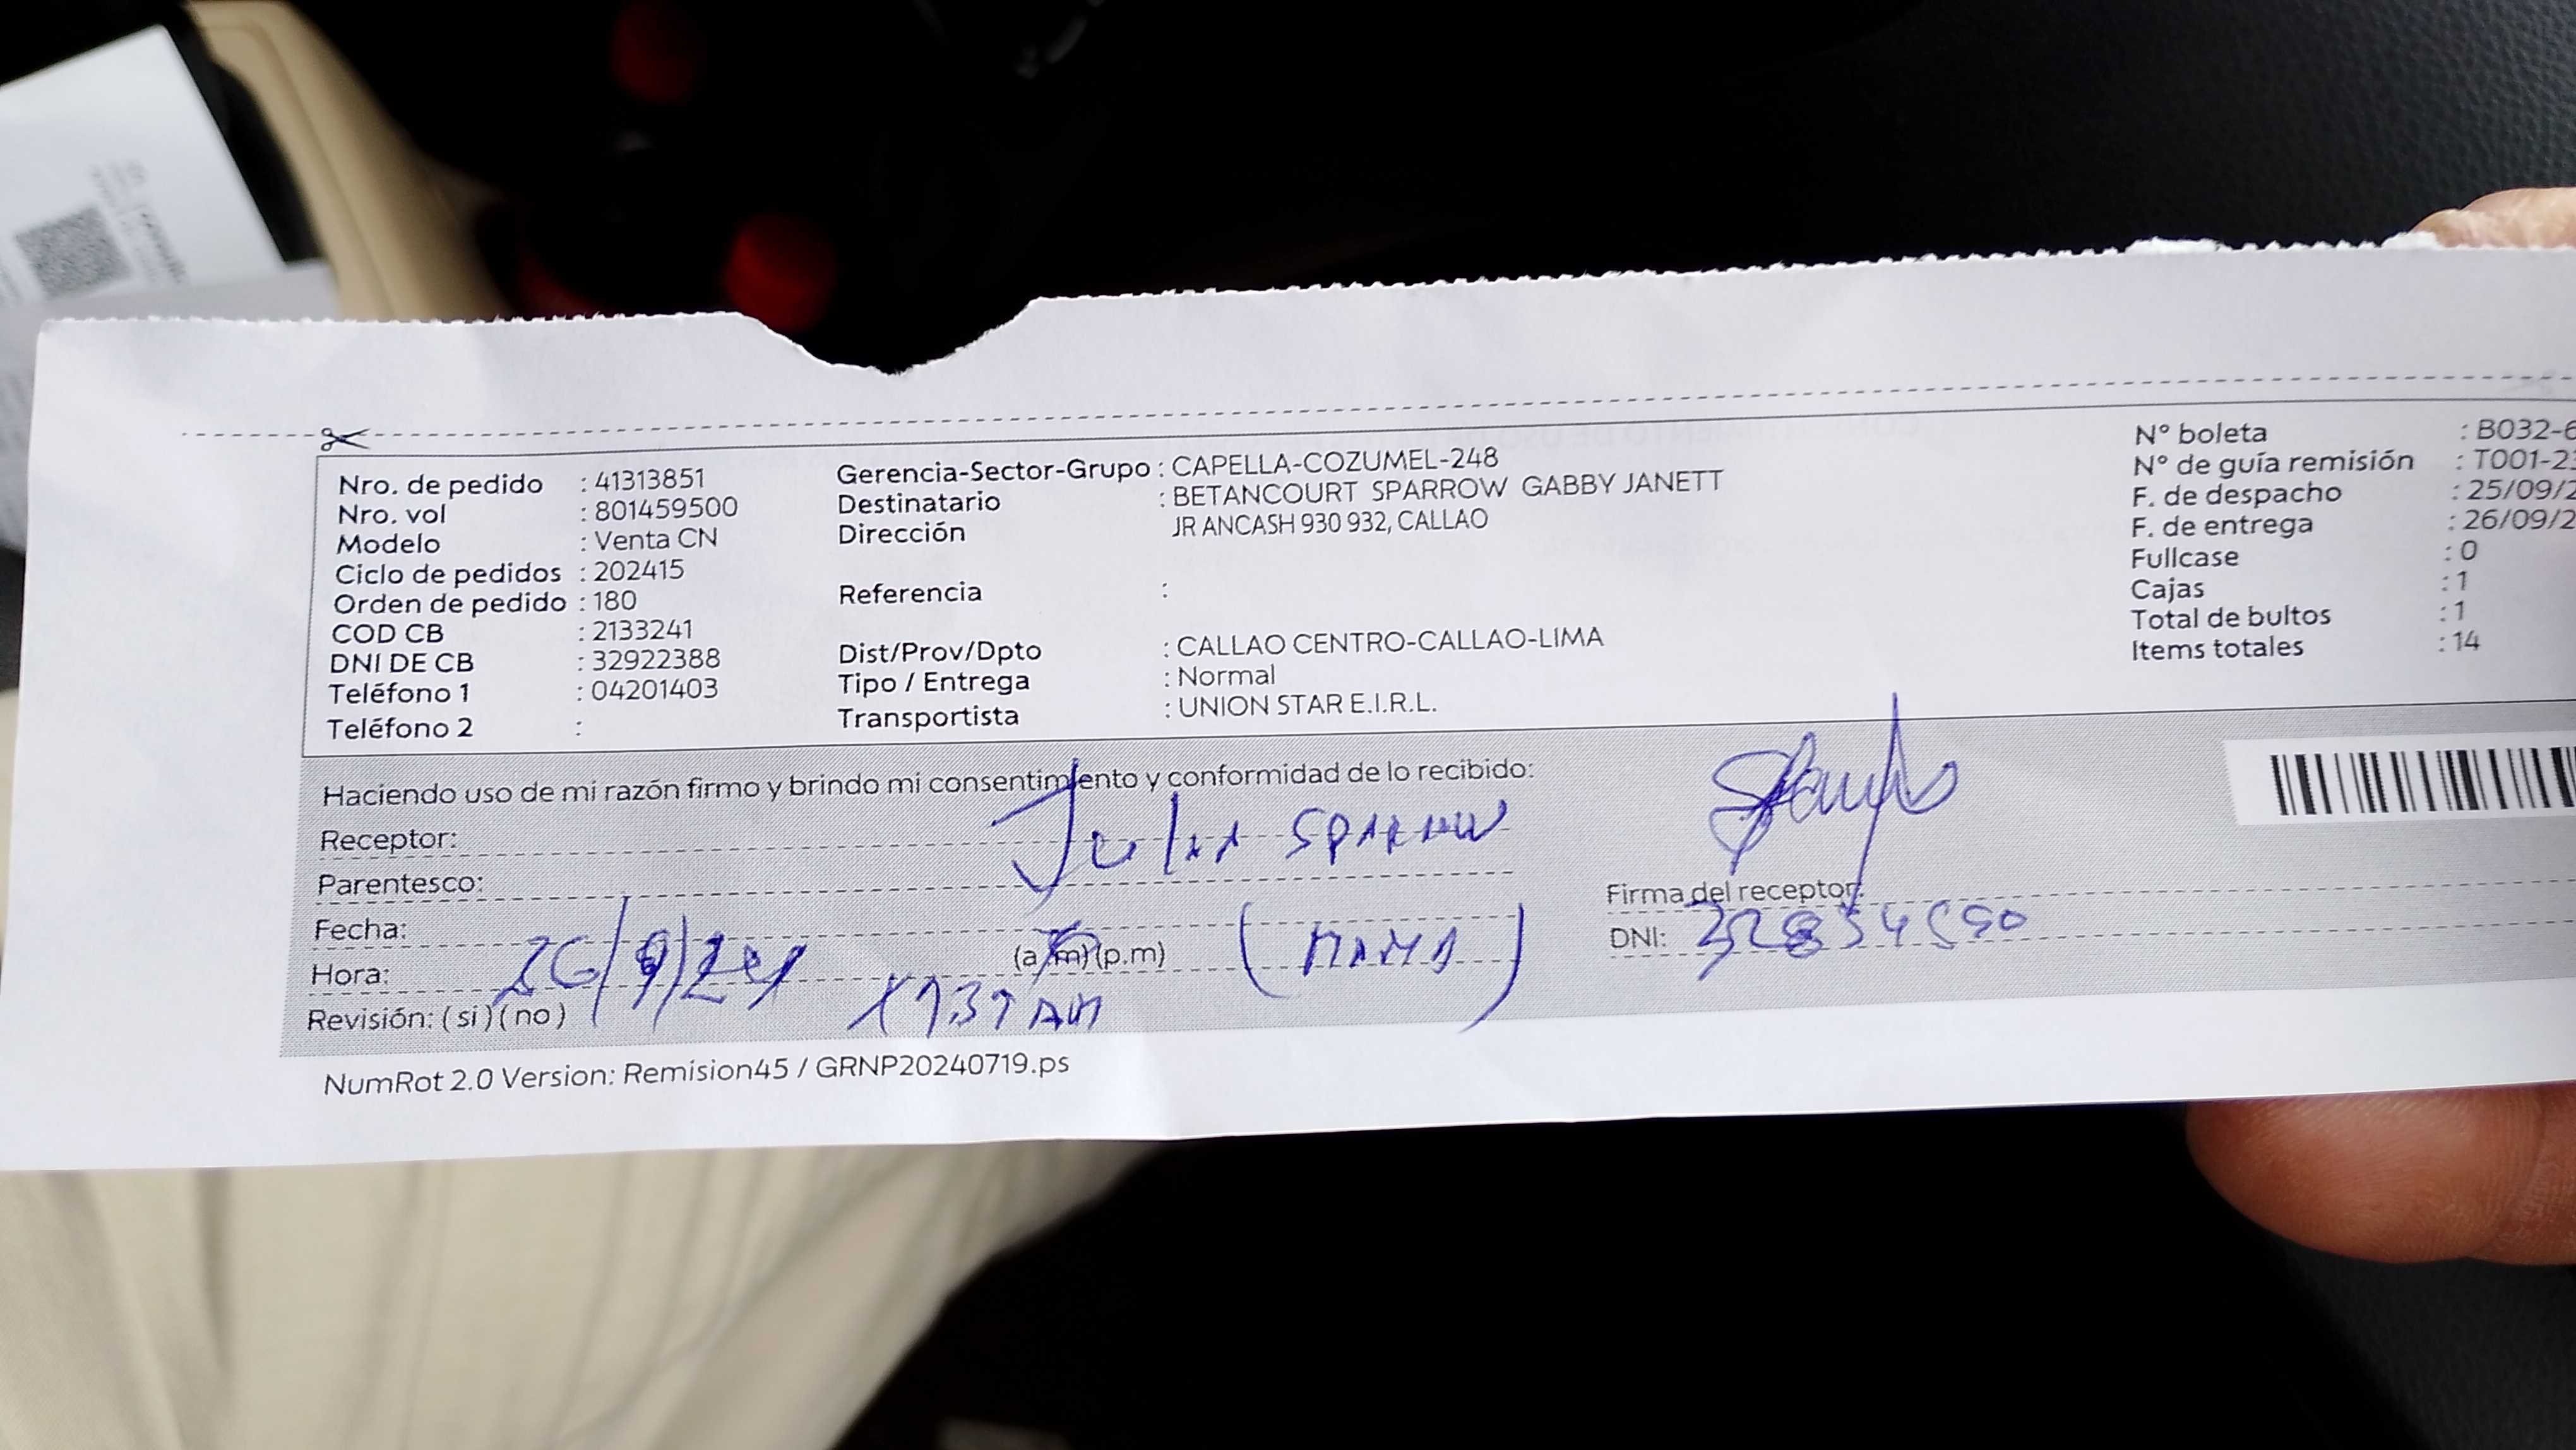 Nro. de pedido : 41313851
Nro. vol : 801459500
Modelo : Venta CN
Ciclo de pedidos : 202415
Orden de pedido : 180
COD CB : 2133241
DNI DE CB : 32922388
Teléfono 1 : 04201403
Teléfono 2 :
Gerencia-Sector-Grupo : CAPELLA-COZUMEL-248
Destinatario : BETANCOURT SPARROW GABBY JANETT
Dirección JR ANCASH 930 932, CALLAO
Referencia :
Dist/Prov/Dpto : CALLAO CENTRO-CALLAO-LIMA
Tipo / Entrega : Normal
Transportista : UNION STAR E.I.R.L.
N° boleta : B032-6
N° de guía remisión : T001-23
F. de despacho : 25/09/2
F. de entrega : 26/09/2
Fullcase : 0
Cajas : 1
Total de bultos : 1
Items totales : 14
Haciendo uso de mi razón firmo y brindo mi consentimiento y conformidad de lo recibido:
Receptor: Julia SPARROW
Parentesco:
Fecha: 26/9/24
Hora: (a.m)(p.m) (MAMA)
Revisión: (si)(no)
Firma del receptor:
DNI:
NumRot 2.0 Version: Remision45 / GRNP20240719.ps